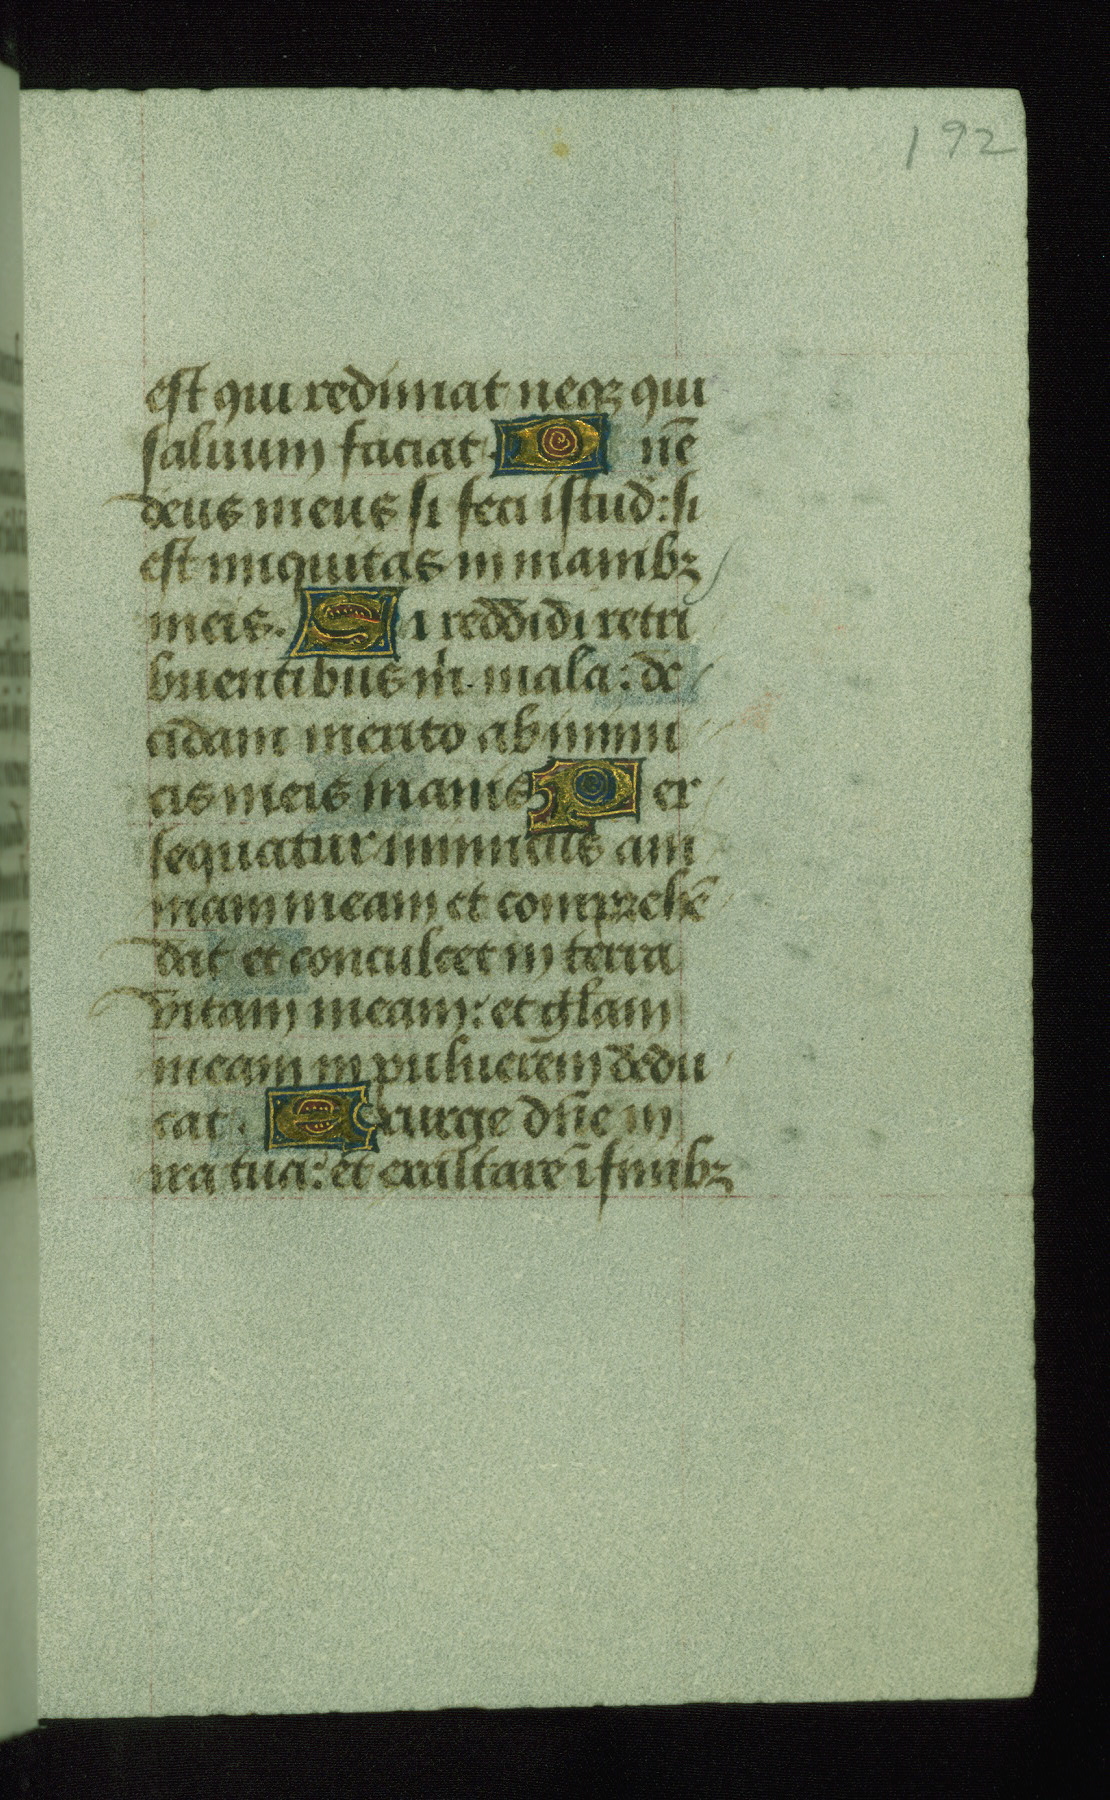 192
est qui redimat neqꝫ qui
saluum faciat. D nē
deus meus si feci istud: si
est iniquitas in manibꝫ
meis. S i reddidi retri
buentibus m̍. mala: de
cidam merito ab inimi
cis meis inanis P er
sequatur inimicus ani
mam meam et comprehē
dat et conculcet in terra
vitam meam: et gl̄am
meam in puluerem dedu
cat. E xurge dn̄e in
ira tua: et exaltare ī finibꝫ